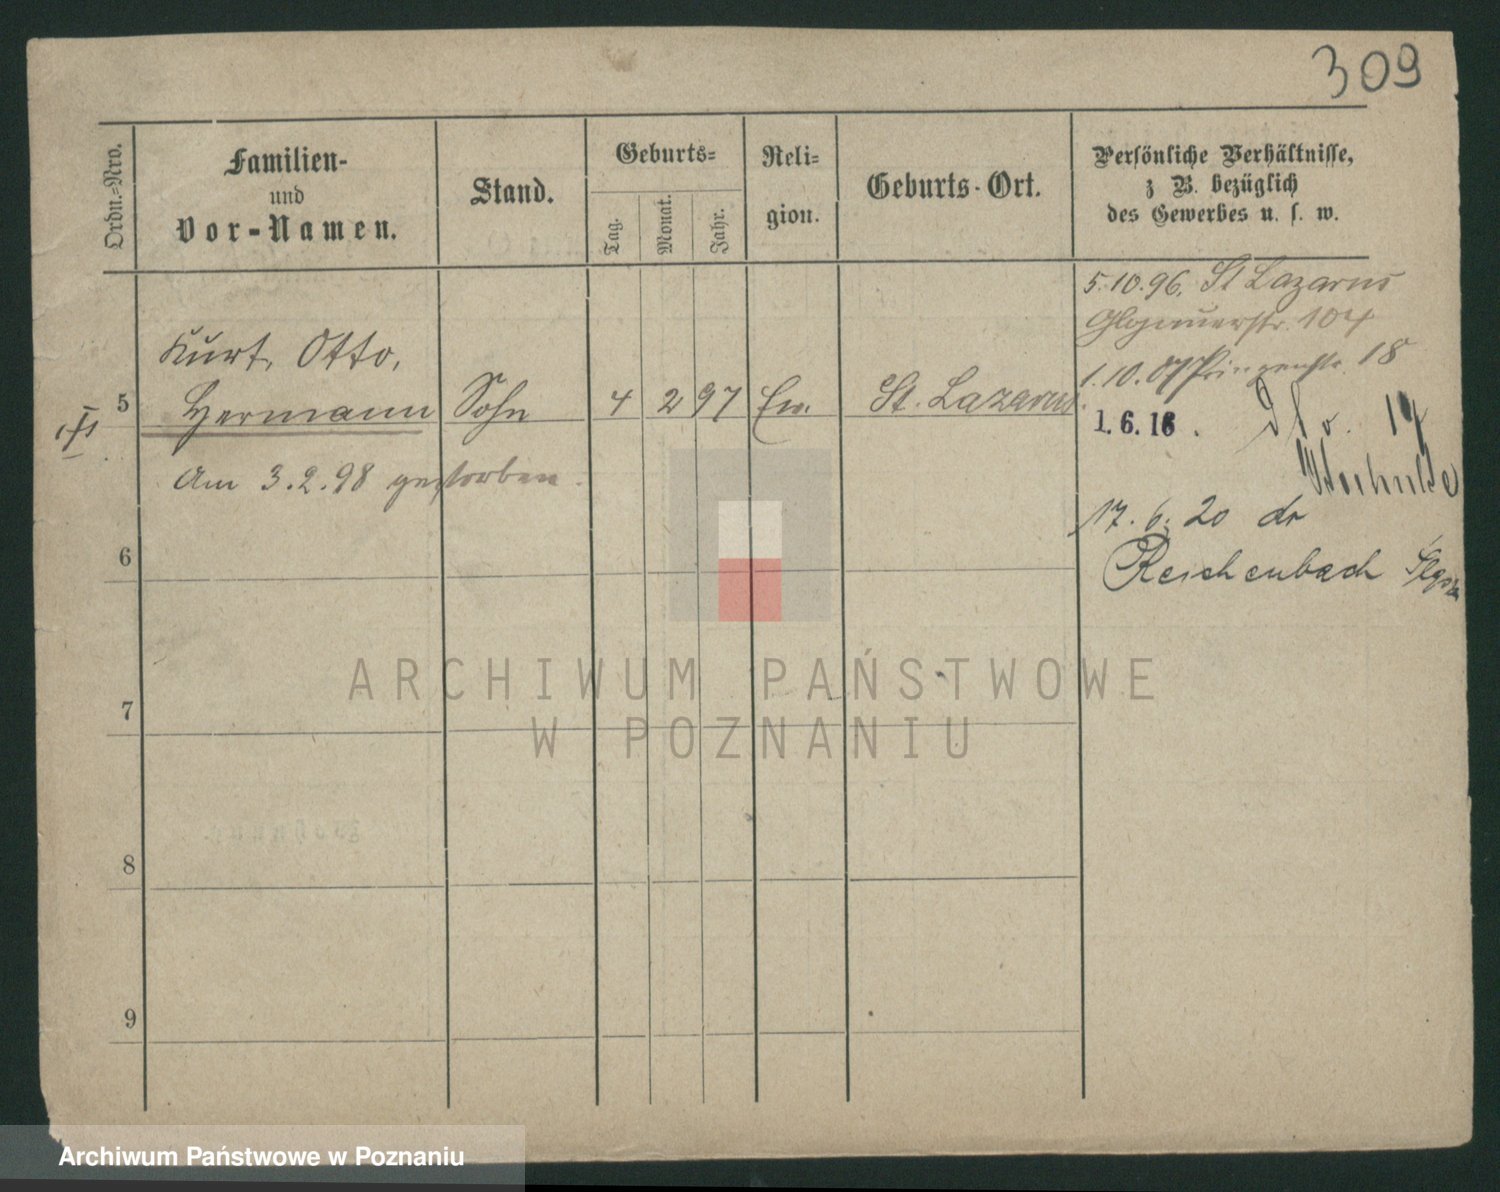 309
Ordn.=Nro.
Familien-
und
Vor-Namen.
Stand.
Geburts=
Tag.
Monat.
Jahr.
Reli=
gion.
Geburts-Ort.
Persönliche Verhältnisse,
z B. bezüglich
des Gewerbes u. s. w.
5.10.96. St Lazarus
Glogauerstr. 104
1.10.07 Prinzenstr. 18
1.6.16.
17
17.6.20 dr
Reichenbach
Kurt, Otto,
5 Hermann Sohn 4 2 97 Ev. St. Lazarus
Am 3.2.98 gestorben.
6
7
8
9
ARCHIWUM PAŃSTWOWE
W POZNANIU
Archiwum Państwowe w Poznaniu